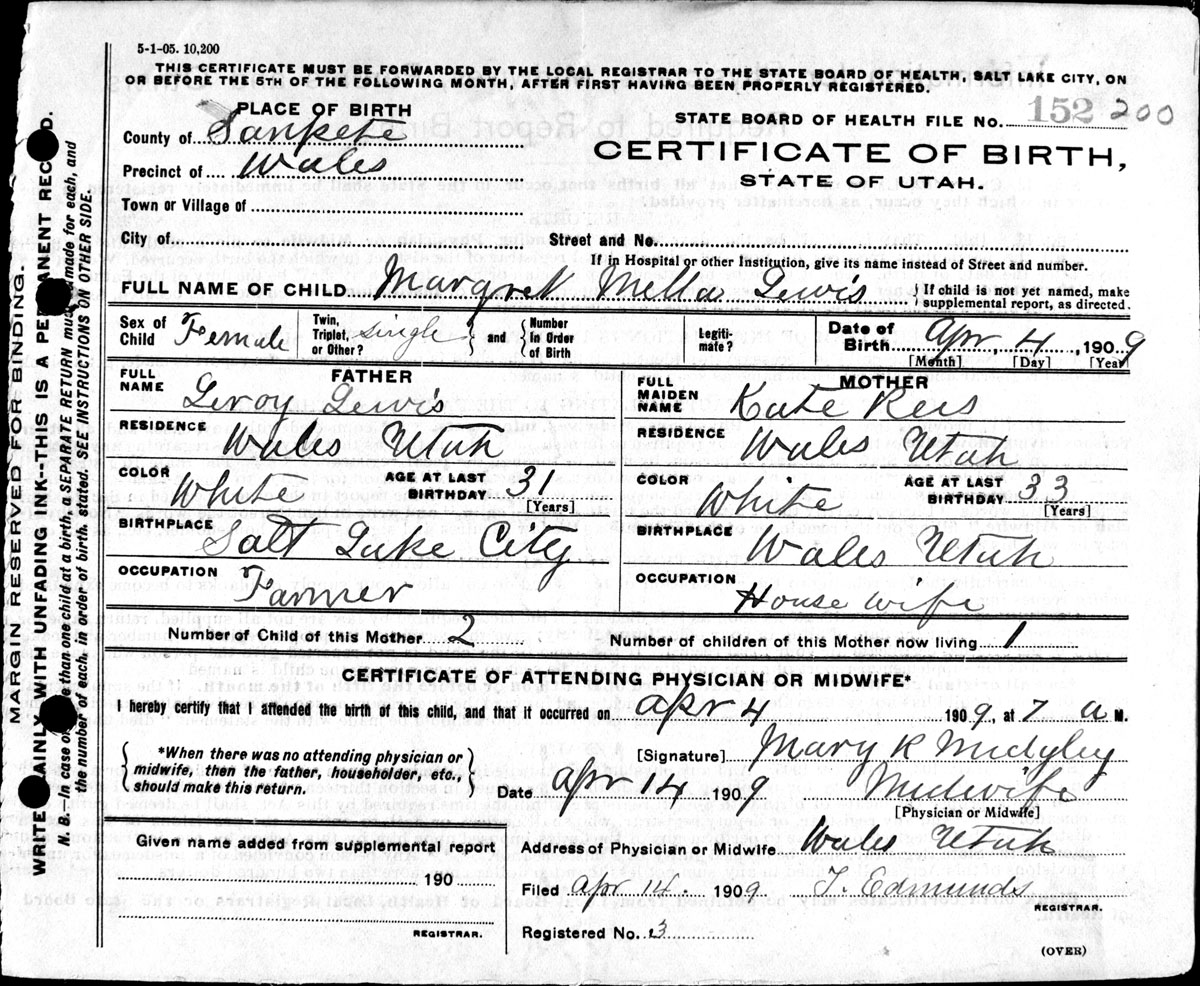 5-1-05. 10,200
THIS CERTIFICATE MUST BE FORWARDED BY THE LOCAL REGISTRAR TO THE STATE BOARD OF HEALTH, SALT LAKE CITY, ON
OR BEFORE THE 5TH OF THE FOLLOWING MONTH, AFTER FIRST HAVING BEEN PROPERLY REGISTERED.
PLACE OF BIRTH
County of Sanpete
Precinct of Wales
Town or Village of
STATE BOARD OF HEALTH FILE No. 152 200
CERTIFICATE OF BIRTH,
STATE OF UTAH.
City of Street and No.
If in Hospital or other Institution, give its name instead of Street and number.
FULL NAME OF CHILD Margret Mella Lewis { If child is not yet named, make
supplemental report, as directed.
Sex of Child Female
Twin, Triplet, or Other? single } and { Number in Order of Birth
Legiti-mate?
Date of Birth Apr, 4, 1909
[Month] [Day] [Year]
FATHER
FULL NAME Leroy Lewis
RESIDENCE Wales Utah
COLOR White AGE AT LAST BIRTHDAY 31
[Years]
BIRTHPLACE Salt Lake City
OCCUPATION Farmer
MOTHER
FULL MAIDEN NAME Kate Rees
RESIDENCE Wales Utah
COLOR White AGE AT LAST BIRTHDAY 33
[Years]
BIRTHPLACE Wales Utah
OCCUPATION House wife
Number of Child of this Mother 2 Number of children of this Mother now living 1
CERTIFICATE OF ATTENDING PHYSICIAN OR MIDWIFE*
I hereby certify that I attended the birth of this child, and that it occurred on Apr 4 1909, at 7 a M.
{ *When there was no attending physician or
midwife, then the father, householder, etc.,
should make this return. }
[Signature] Mary K Midgley
Date Apr 4 1909 Midwife
[Physician or Midwife]
Given name added from supplemental report
190
REGISTRAR.
Address of Physician or Midwife Wales Utah
Filed Apr 14. 1909 T. Edmunds
REGISTRAR.
Registered No. 3
(OVER)
MARGIN RESERVED FOR BINDING.
WRITE AINLY WITH UNFADING INK--THIS IS A PE ANENT REC D.
N. B.—In case o e than one child at a birth a SEPARATE RETURN mu made for each, and
the number of each, in order of birth. stated. SEE INSTRUCTIONS ON OTHER SIDE.